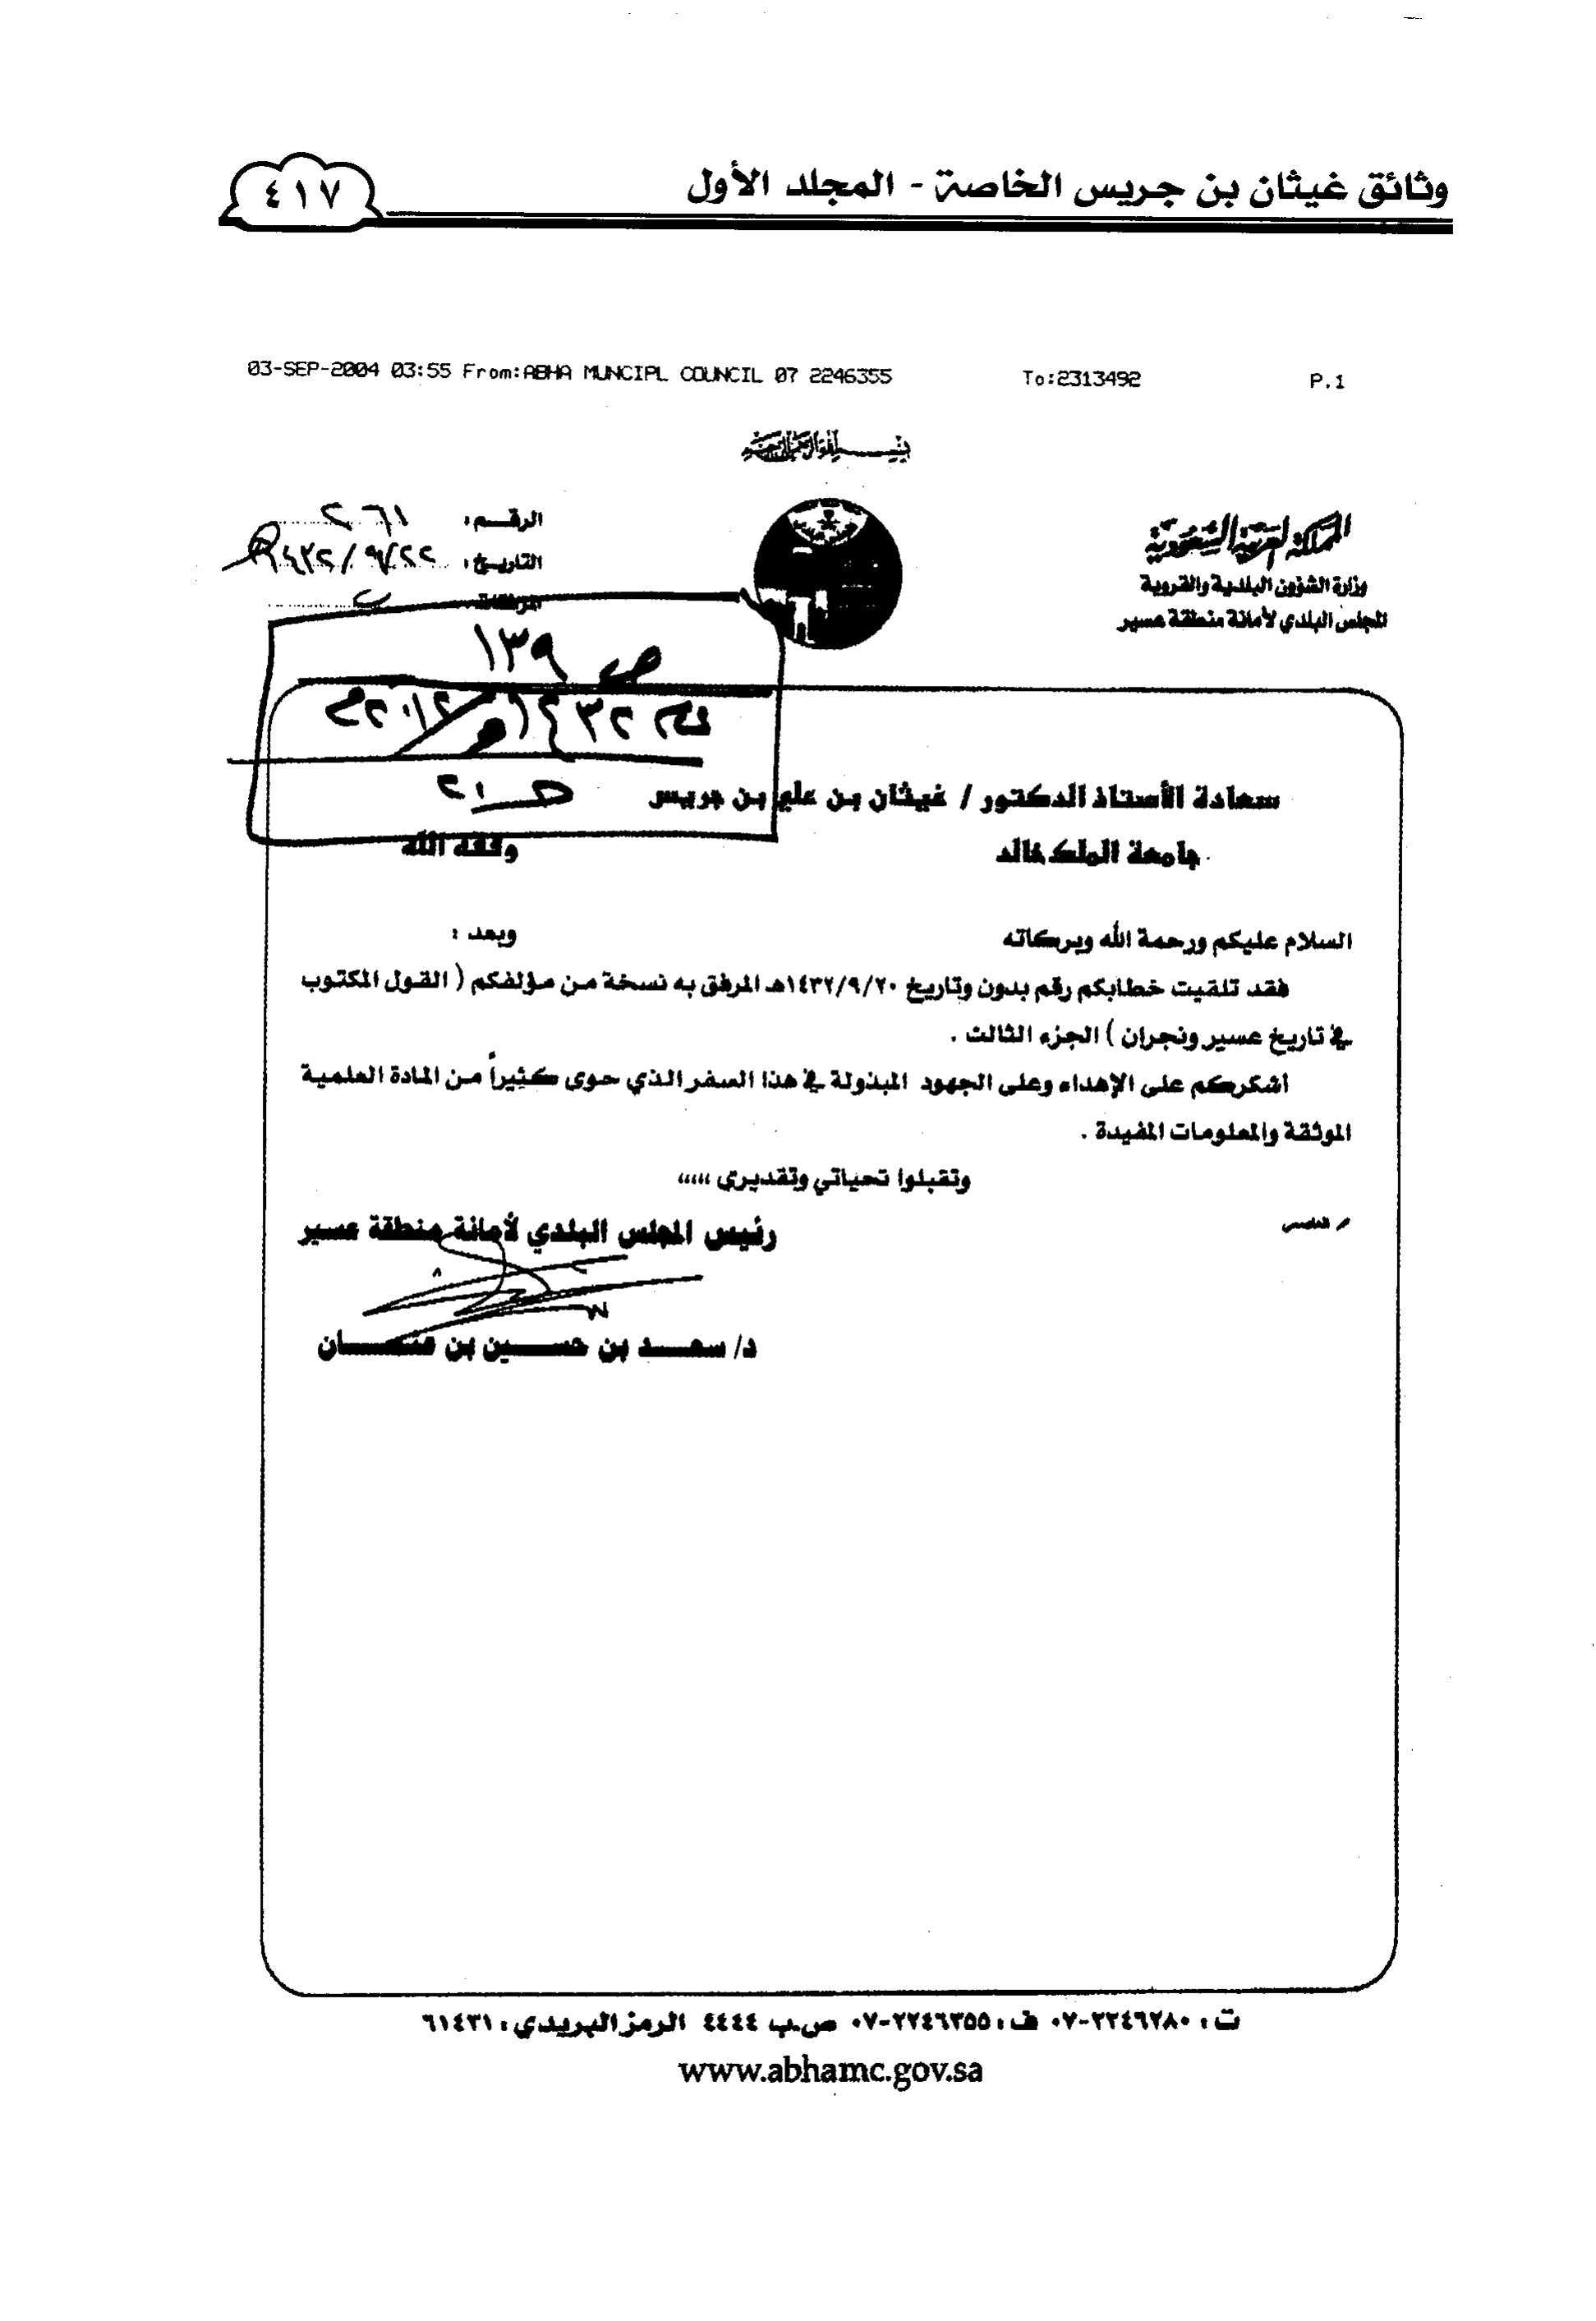 وثائق غيثان بن جريس الخاصة - المجلد الأول
٤١٧
03-SEP-2004 03:55 From:ABHA MUNCIPL COUNCIL 07 2246355 To:2313492 P.1
بسم الله الرحمن الرحيم
المملكة العربية السعودية
وزارة الشؤون البلدية والقروية
المجلس البلدي لأمانة منطقة عسير
الرقم : ٢٦١
التاريخ : ١٤٣٢/٩/٢٢
المرفقات
ص ١٣٩
سعادة الأستاذ الدكتور / غيثان بن علي بن جريس
جامعة الملك خالد وفقه الله
السلام عليكم ورحمة الله وبركاته وبعد :
فقد تلقيت خطابكم رقم بدون وتاريخ ١٤٣٢/٩/٢٠هـ المرفق به نسخة من مؤلفكم ( القول المكتوب
في تاريخ عسير ونجران ) الجزء الثالث .
أشكركم على الإهداء وعلى الجهود المبذولة في هذا السفر الذي حوى كثيراً من المادة العلمية
الموثقة والمعلومات المفيدة .
وتقبلوا تحياتي وتقديري ،،،،،
رئيس المجلس البلدي لأمانة منطقة عسير
د/ سعـــد بن حســـين بن عثمـــان
ت : ٢٢٤٦٢٨٠-٠٧ ف : ٢٢٤٦٣٥٥-٠٧ ص.ب ٤٤٤٤ الرمز البريدي : ٦١٤٣١
www.abhamc.gov.sa